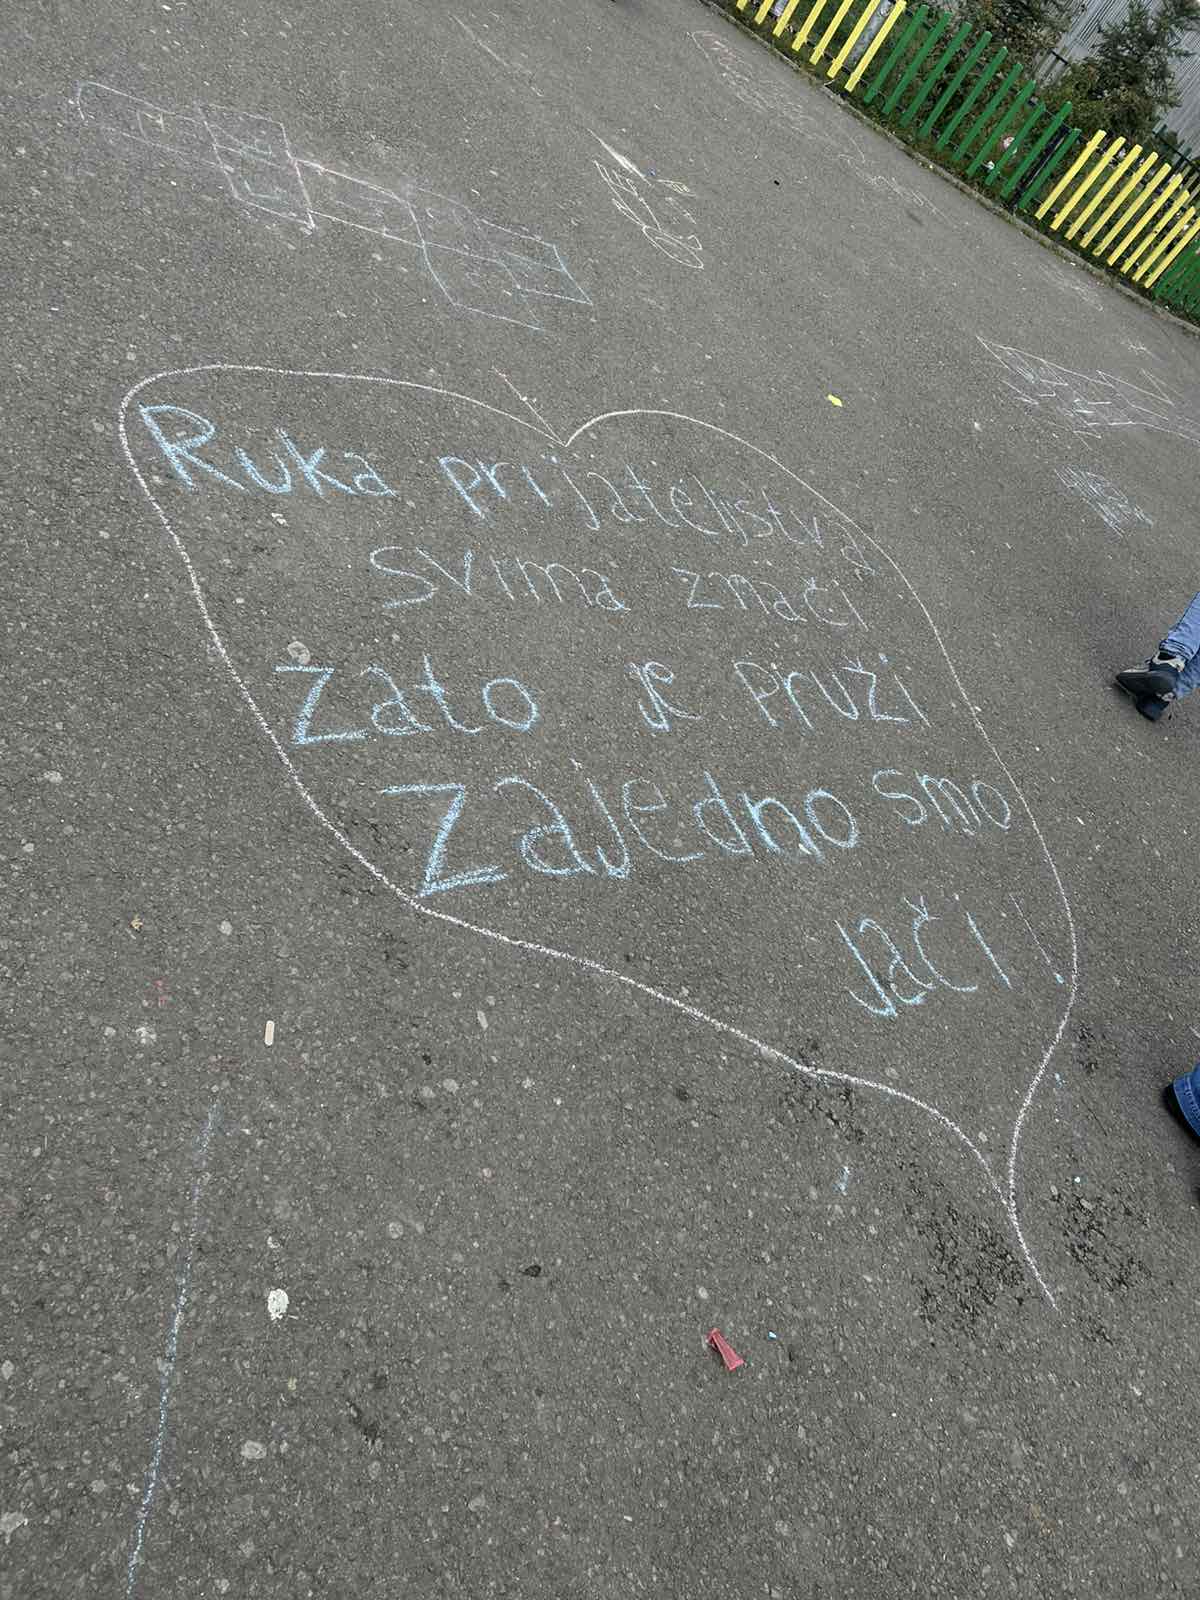 Ruka prijateljstva
svima znači
Zato je Pruži
Zajedno smo
Jači!!